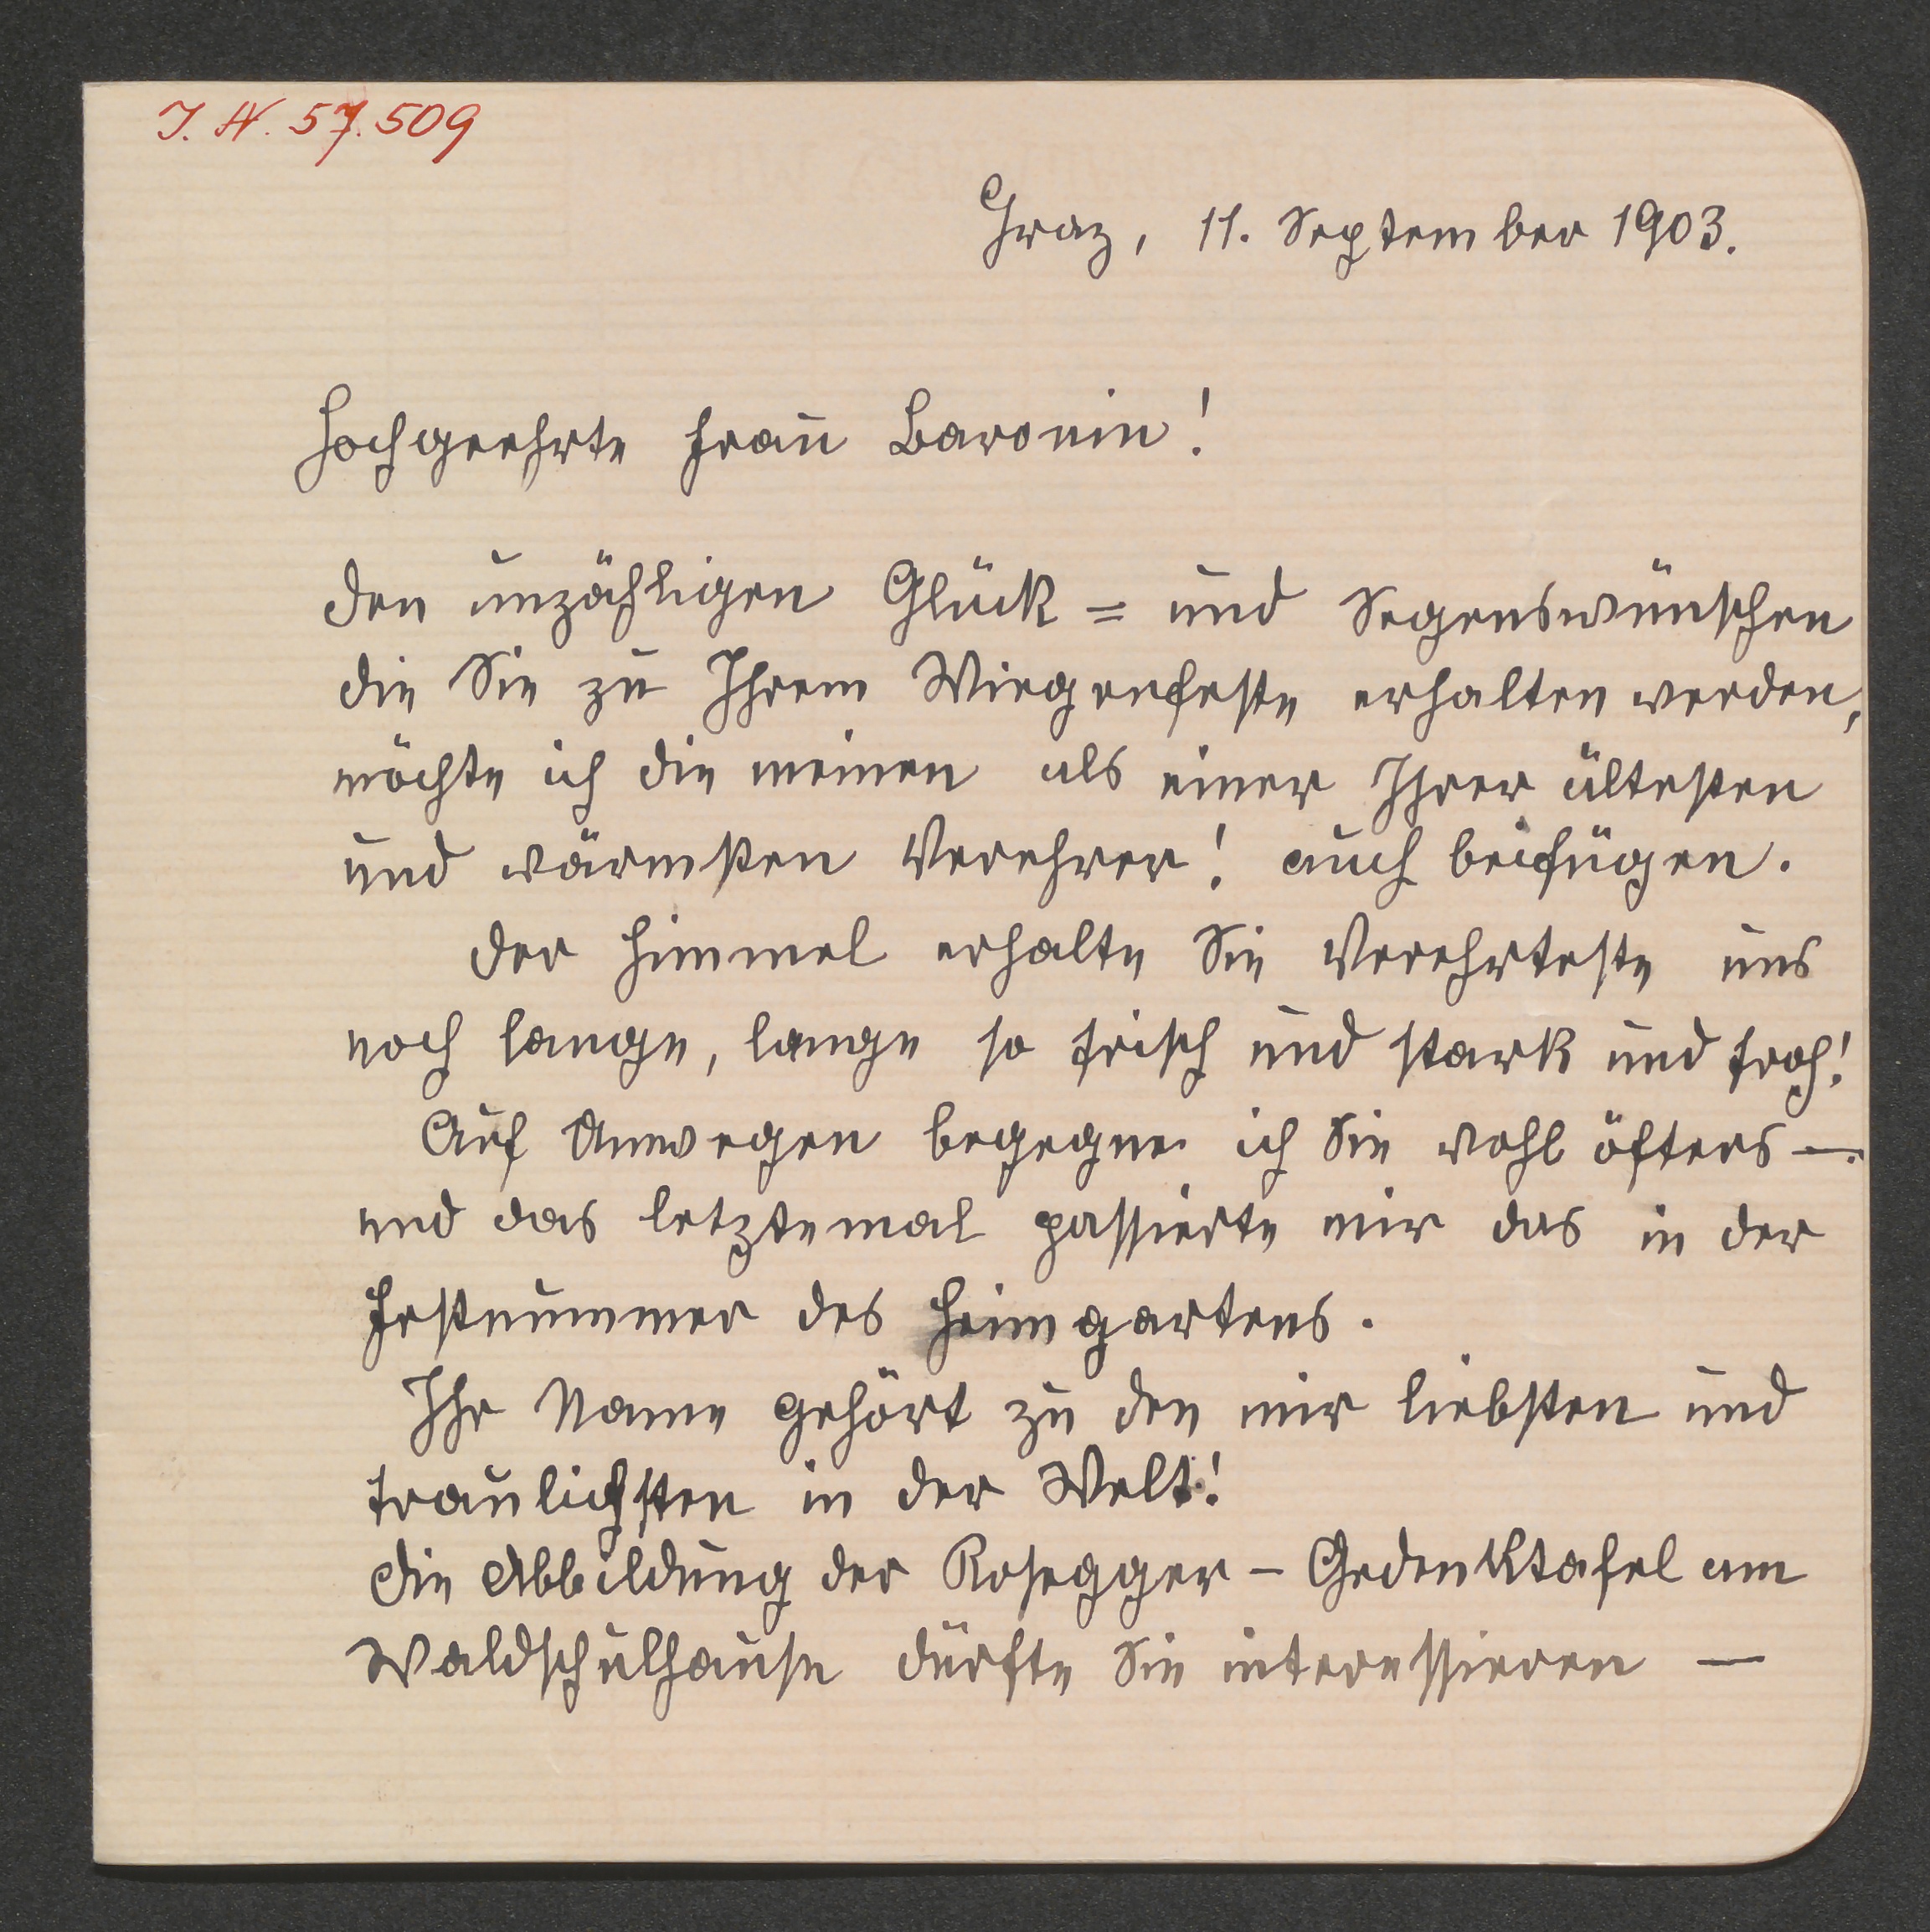 I. N. 57.509
Graz, 11. September 1903.
Hochgeehrte Frau Baronin!
Den unzähligen Glück= und Segenswünschen
die Sie zu Ihrem Wiegenfeste erhalten werden,
möchte ich die meinen als einer Ihrer ältesten
und wärmsten Verehrer! auch beifügen.
Der Himmel erhalte Sie Verehrteste uns
noch lange, lange so frisch und stark und froh!
Auf Umwegen begegne ich Sie wohl öfters —
und das letztemal passierte mir das in der
Festnummer des Heimgartens.
Ihr Name gehört zu den mir liebsten und
traulichsten in der Welt!
Die Abbildung der Rosegger-Gedenktafel am
Waldschulhause dürfte Sie interessieren —